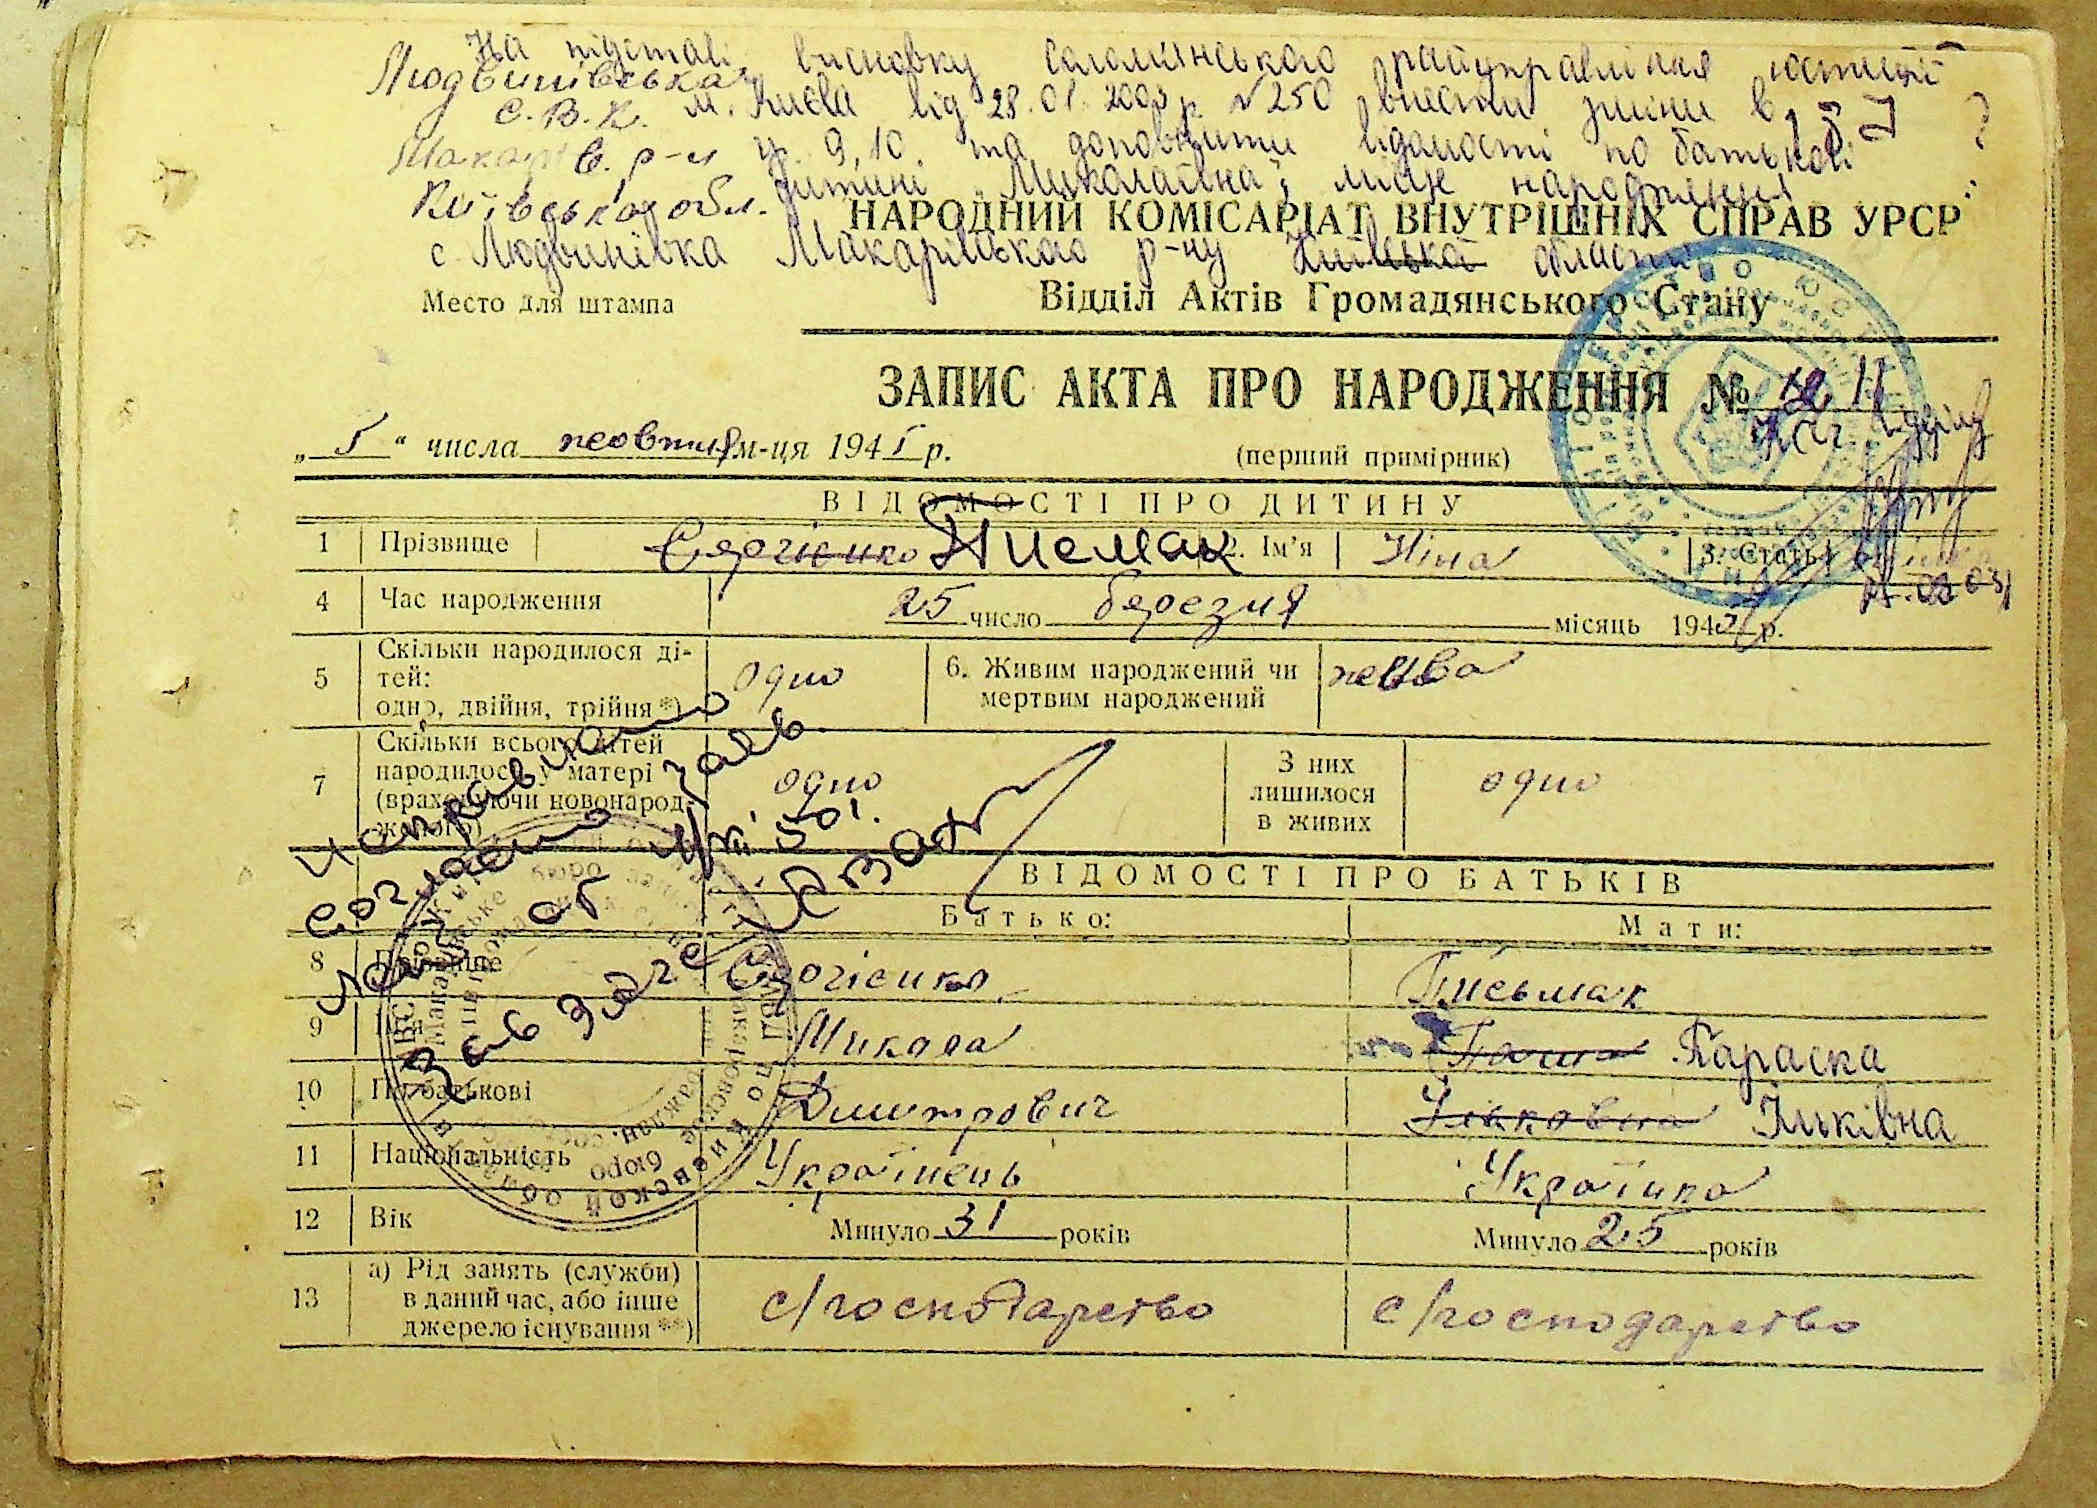 На підставі висновку Солом'янського райуправління юстиції
Людвинівська
С.В.К. м. Києва від 28.01.2003 р. №250 внести зміни в
Макарів. р-н 9, 10 та доповнити відомості по батькові
Київської обл. дитині "Миколаївна", місце народження
НАРОДНИЙ КОМІСАРІАТ ВНУТРІШНІХ СПРАВ УРСР
с. Людвинівка Макарівського р-ну Київська області
Место для штампа Відділ Актів Громадянського Стану
ЗАПИС АКТА ПРО НАРОДЖЕННЯ №
„ 5 “ числа жовтня м-ця 1945 р. (перший примірник)
ВІДОМОСТІ ПРО ДИТИНУ
1 Прізвище Сергієнко Писмак 2. Ім'я Ніна 3. Стать
4 Час народження 25 число березня місяць 194 р.
5 Скільки народилося ді-
тей:
одно, двійня, трійня *) одно 6. Живим народжений чи
мертвим народжений жива
7 Скільки всього дітей
народилося у матері
(враховуючи новонарод-
женого) одно З них
лишилося
в живих одно
Исправлено
согласно заяв
Зав Загс
ВІДОМОСТІ ПРО БАТЬКІВ
Батько: Мати:
8 Прізвище Сергієнко Письмак
9 Ім'я Микола Параска
10 По батькові Дмитрович Ільковна Ільківна
11 Національність Українець Українка
12 Вік Минуло 31 років Минуло 25 років
13 а) Рід занять (служби)
в даний час, або інше
джерело існування **) с/господарство с/господарство